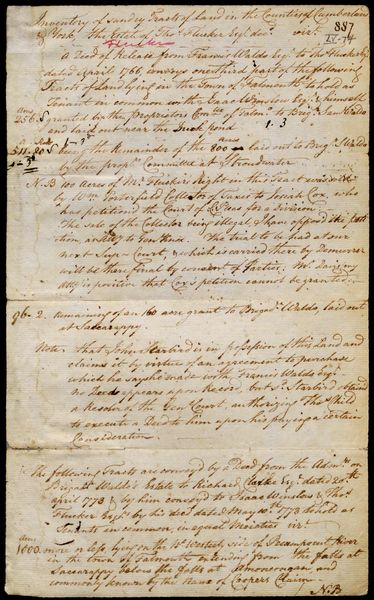 Inventory of Sundry Tracts of Land in the Counties of Cumberland
& York, the Estate of Thos. Flucker Esqr. decd. vizt.
887
IV-74
Flucker
A Deed of Release from Francis Waldo Esqr. to Thos Flucker Esqr.
dated April 1766, conveys one third part of the following
Tracts of Land lying in the Town of Falmouth to hold as
Tenant in common with Isaac Winslow Esqr. & himself
Acres
256.
granted by the Proprietors Comtte. of Falmo. to Brigr. Saml Waldo
and laid out near the Duck pond 1-3
being the Remainder of the 800 acres laid out to Brigr. S. Waldo
by the Propr. Committee at Stroudwater
N.B 100 Acres of Mr. Flucker's Right in this Tract was sold
by Wm. Porterfield Collector of Taxes to Josiah Cox, who
has petitioned the Court of for a division
the Sale of the Collector being illegal, I have opposed the
The trial to be had at our
next Sup. Court, & which is carried there by Demurrer
will be there final by consent of Parties. Mr.
Atty is positive that Cox's petition cannot be granted
96-2. remaining of an 160 acre grant to Brigadr. Waldo, laid out
at Sacarappy
Note that John Starbird is in possession of this Land and
claims it by virtue of an agreement to purchase
which he says he made with Francis Waldo Esqr.
no Deed appears upon Record, but sd. Starbird obtaind
a Resolve of the Genl Court, authorizing Thos.
to execute a Deed to him upon his paying a certain
Consideration.
The following Tracts are conveyd by a Deed from the Admrs. on
Brigadr. Waldo's Estate to Richard Clarke Esqr. dated 20th
April 1773 & by him conveyd to Isaac Winslow & Thos.
Flucker Esqrs. by his deed dated May 10th 1773 to hold as
Tenants in common, in equal Moieties vizt.
Acres
1000. more or less lying on the So. Westerly side of Presumpscot River
in the town of Falmouth extending from the falls at
Saccarappy below the falls at Amoncongan and
commonly known by the name of Coopers Claim.
N.B